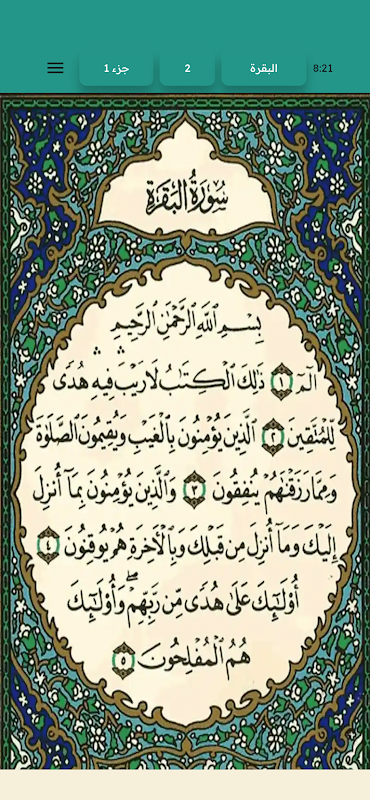 8:21
البقرة
2
جزء 1
سُورَةُ البَقَرَةِ
بِسْمِ ٱللَّهِ ٱلرَّحْمَٰنِ ٱلرَّحِيمِ
الٓمٓ ١ ذَٰلِكَ ٱلْكِتَٰبُ لَا رَيْبَ ۛ فِيهِ ۛ هُدًى
لِّلْمُتَّقِينَ ٢ ٱلَّذِينَ يُؤْمِنُونَ بِٱلْغَيْبِ وَيُقِيمُونَ ٱلصَّلَوٰةَ
وَمِمَّا رَزَقْنَٰهُمْ يُنفِقُونَ ٣ وَٱلَّذِينَ يُؤْمِنُونَ بِمَآ أُنزِلَ
إِلَيْكَ وَمَآ أُنزِلَ مِن قَبْلِكَ وَبِٱلْءَاخِرَةِ هُمْ يُوقِنُونَ ٤
أُو۟لَٰٓئِكَ عَلَىٰ هُدًى مِّن رَّبِّهِمْ ۖ وَأُو۟لَٰٓئِكَ
هُمُ ٱلْمُفْلِحُونَ ٥